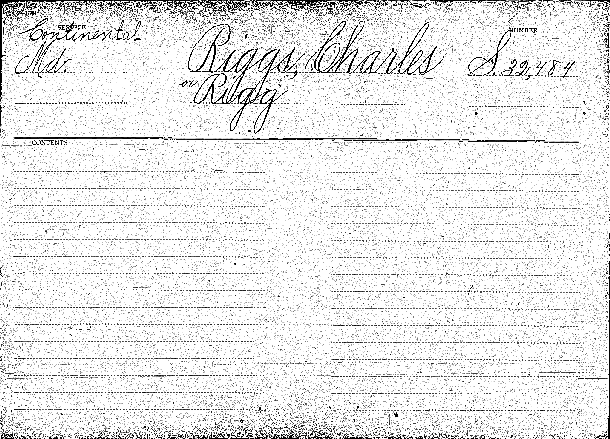 SERVICE
NUMBER
Continental
Md.
Riggs, Charles
or Rigg
S. 22,484
CONTENTS